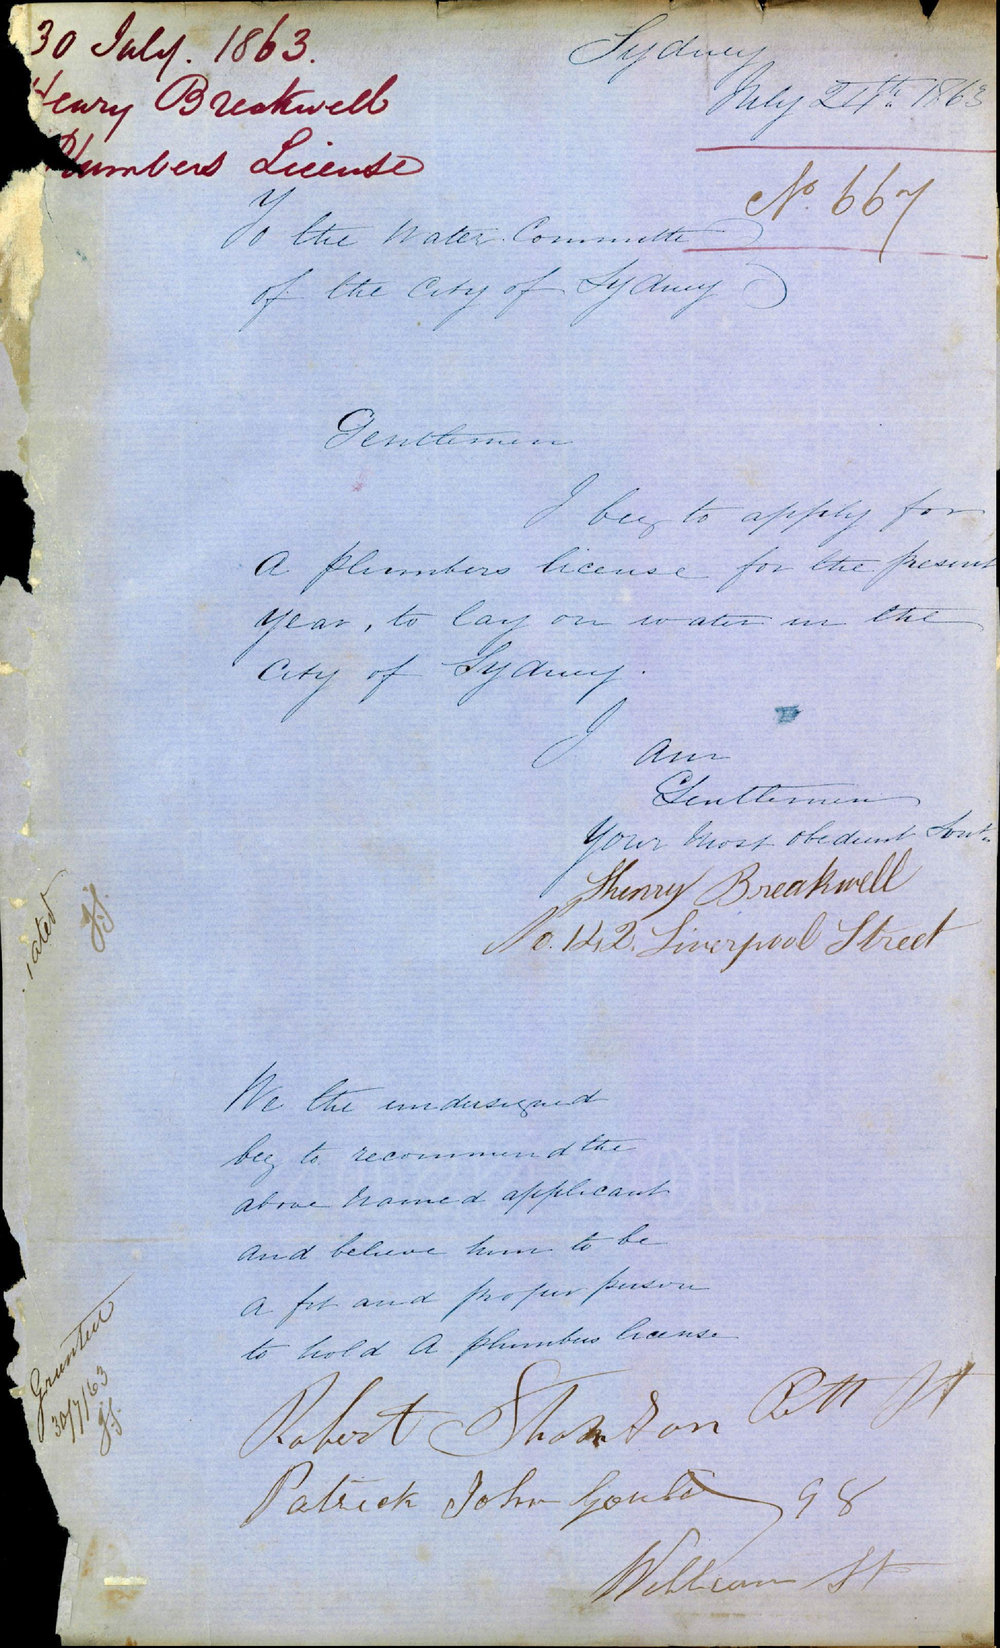 30 July. 1863.
Henry Breakwell
Plumbers License
Sydney
July 24th 1863
No. 667
To the Water Committe
of the City of Sydney
Gentlemen
I beg to apply for
a plumbers license for the present
year, to lay on water in the
City of Sydney.
I am
Gentlemen
Your most obedient Svt.
Henry Breakwell
No. 142. Liverpool Street
We the undersigned
beg to recommend the
above named applicant
and believe him to be
a fit and proper person
to hold a plumbers license
Robert Pitt St
Patrick John 98
William St
Granted
30/7/63